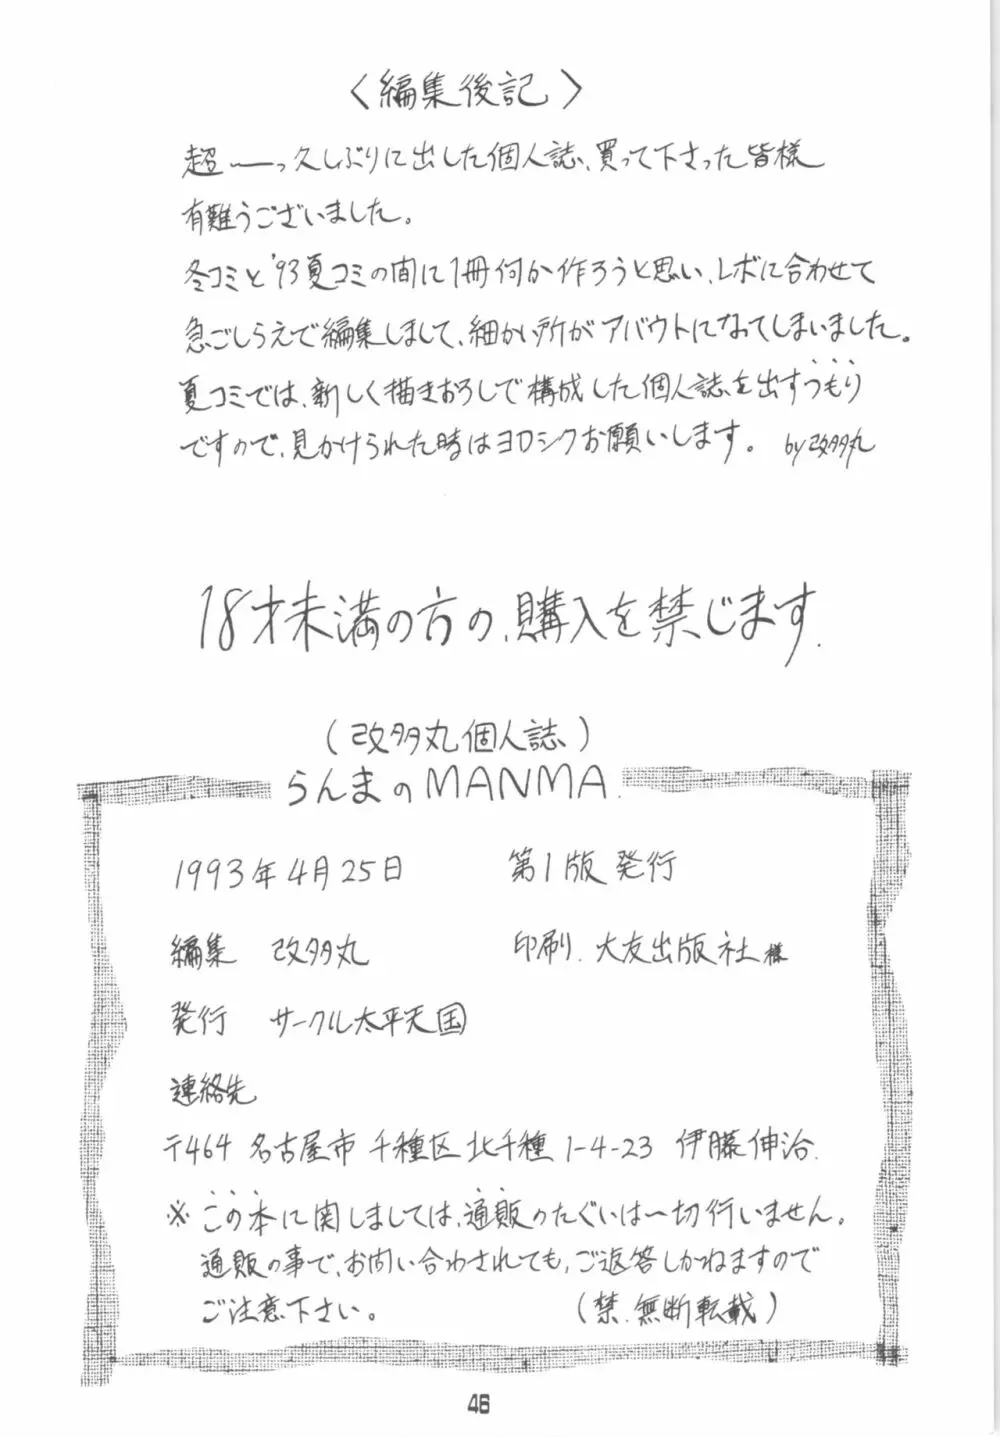 〈編集後記〉
超——っ久しぶりに出した個人誌、買って下さった皆様
有難うございました。
冬コミと'93夏コミの間に1冊何か作ろうと思い、レボに合わせて
急ごしらえで編集しまして、細かい所がアバウトになってしまいました。
夏コミでは、新しく描きおろしで構成した個人誌を出すつもり
ですので、見かけられた時はヨロシクお願いします。 by改多丸
18才未満の方の、購入を禁じます.
(改多丸個人誌)
らんまのMANMA.
1993年4月25日 第1版発行
編集 改多丸 印刷. 大友出版社様
発行 サークル太平天国
連絡先
〒464 名古屋市千種区北千種1-4-23 伊藤伸治.
※この本に関しましては、通販のたぐいは一切行いません。
通販の事で、お問い合わされても、ご返答しかねますので
ご注意下さい。 (禁.無断転載)
46